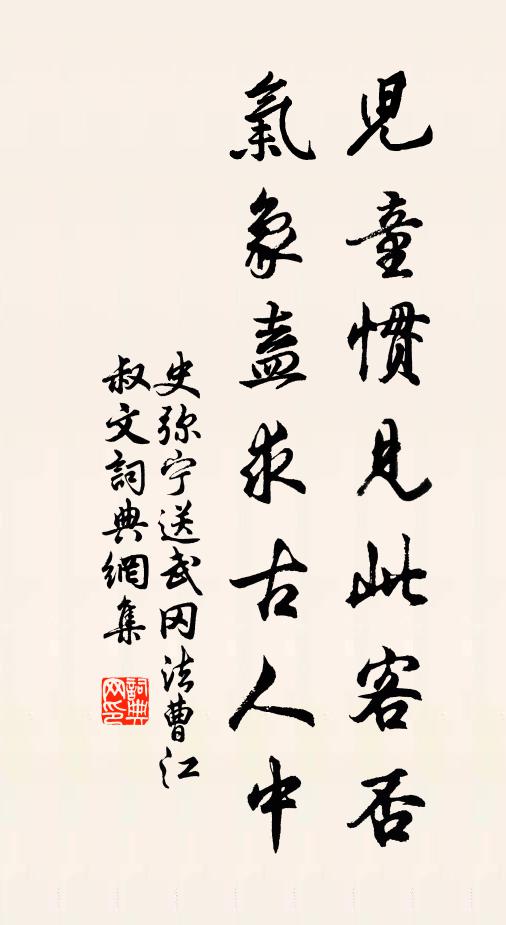 兒童慣見此客否
氣象盍求古人中
史弥宁送武冈法曹江
叔文詞典網集
詞典网印